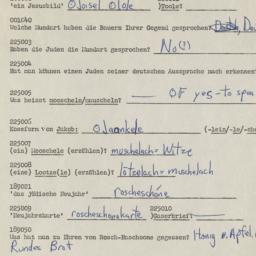 'ein Jesusbild' Ojoisel Olole )Toole(
001040
Welche Mundart haben die Bauern Ihrer Gegend gesprochen?
225003
Haben die Juden die Mundart gesprochen? No(!)
225004
Hat man können einen Juden seiner deutschen Aussprache nach erkennen?
225005
Was heisst mooscheln/muuscheln? OF yes - to span
225006
Koseform von Jakob: Ojaankele (-lein/-le/-che
225007
(ein) Mooschele (erzählen)? muschelach = Witze
225008
(eine) Lootze(le) (erzählen)? lotzelach = muschelach
189021
'das jüdische Neujahr' roscheschöne
225009 225010
'Neujahrskarte' roscheschonekarte )Kaserbrief(
189050
Was hat man zu Ihnen von Rosch-Haschoone gegessen? Honig u. Äpfel,
Rundes Brot